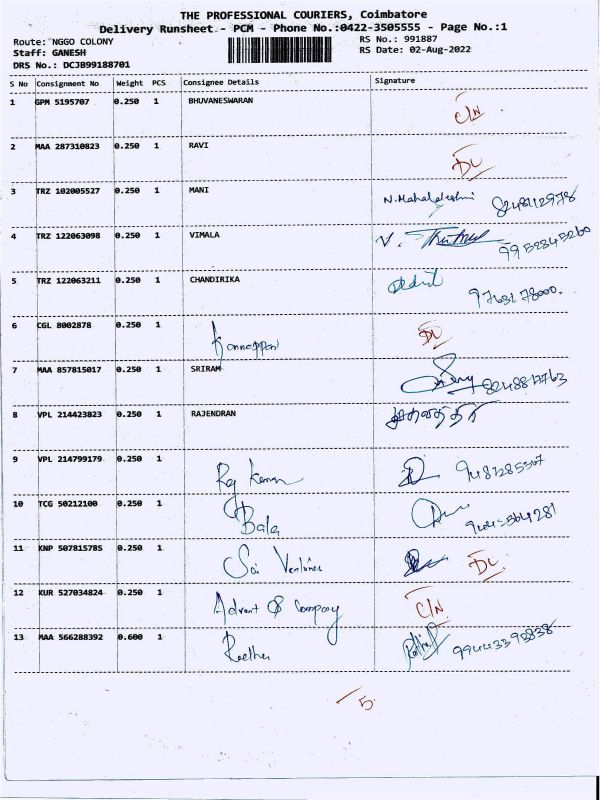 THE PROFESSIONAL COURIERS, Coimbatore
Delivery Runsheet - PCM - Phone No.:0422-3505555 - Page No.:1
Route: NGGO COLONY RS No.: 991887
Staff: GANESH RS Date: 02-Aug-2022
DRS No.: DCJB99188701
S No Consignment No Weight PCS Consignee Details Signature
1 GPM 5195707 0.250 1 BHUVANESWARAN C/N
2 MAA 287310823 0.250 1 RAVI DL
3 TRZ 102005527 0.250 1 MANI N. Mahalakshmi
4 TRZ 122063098 0.250 1 VIMALA V. 9952845260
5 TRZ 122063211 0.250 1 CHANDIRIKA
6 CGL 8002878 0.250 1 Kannappan DL
7 MAA 857815017 0.250 1 SRIRAM
8 VPL 214423823 0.250 1 RAJENDRAN
9 VPL 214799179 0.250 1 Raj Kumar
10 TCG 50212100 0.250 1 Bala
11 KNP 507815785 0.250 1 Sai DL
12 KUR 527034824 0.250 1 Advant & Company C/N
13 MAA 566288392 0.600 1 99443393838
5